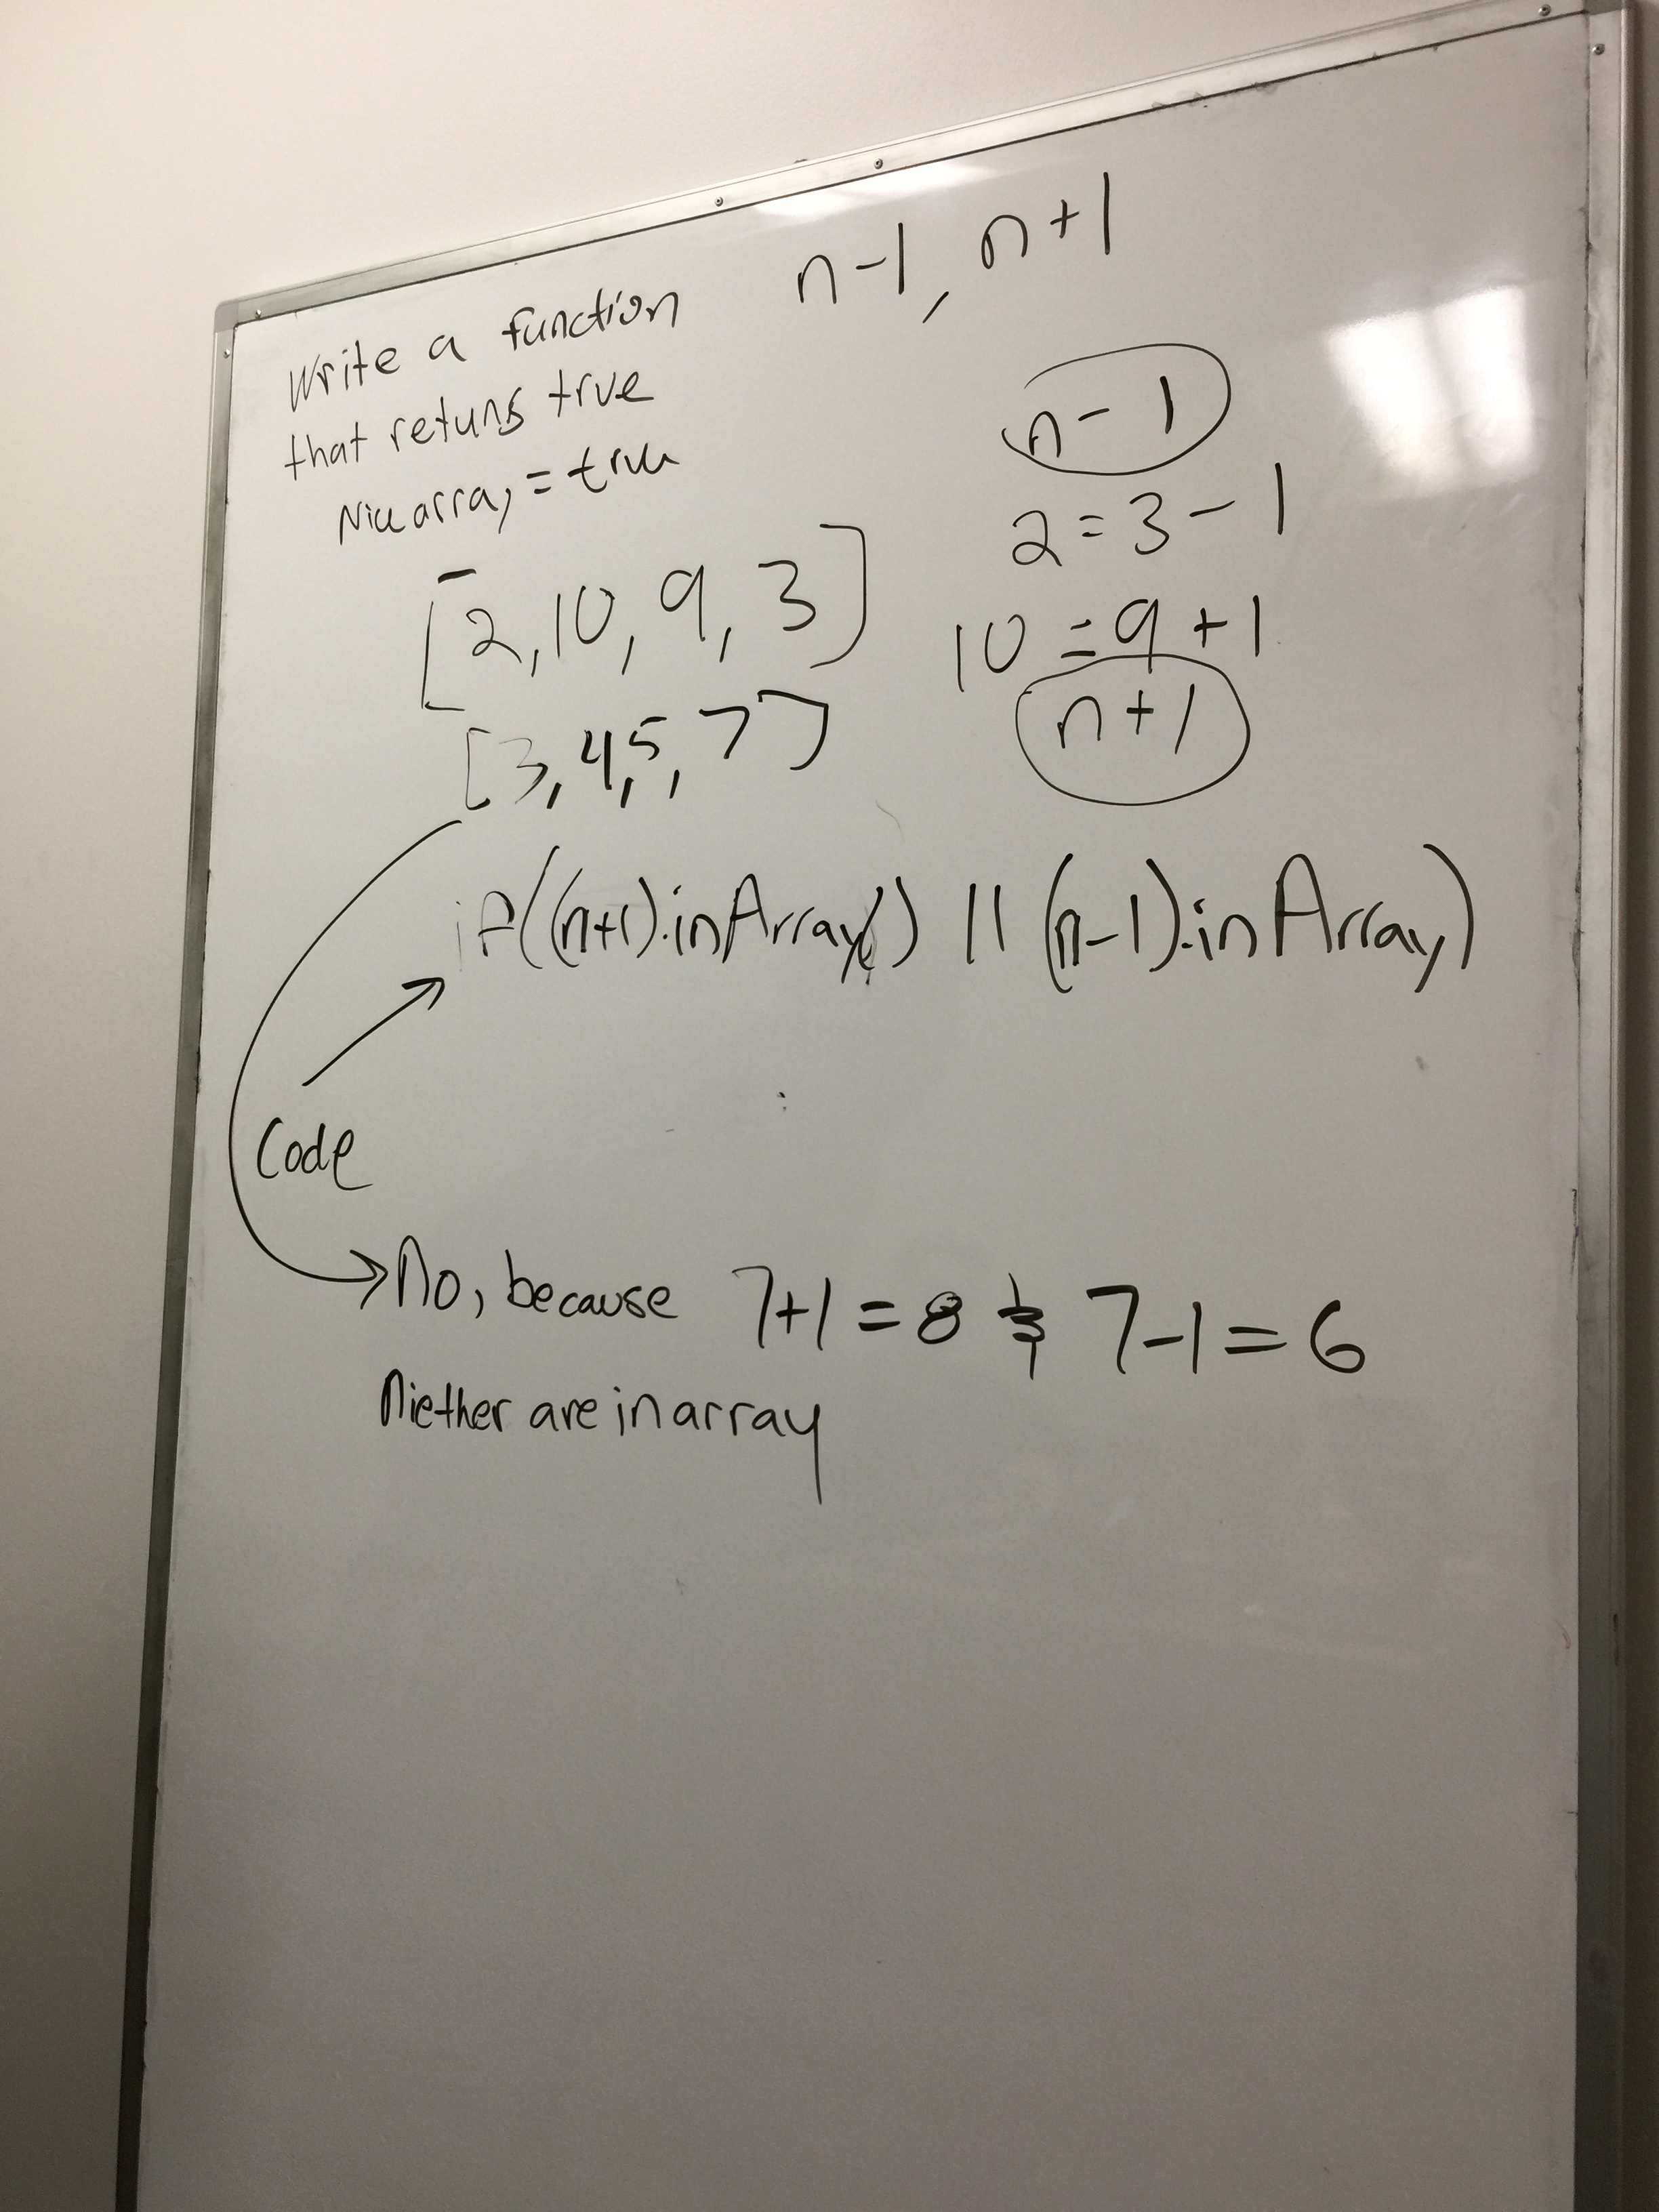 n-1, n+1
Write a function
that retuns true
Nice array = true
[2,10,9,3]
[3,4,5,7]
n-1
2=3-1
10=9+1
n+1
if((n+1).inArray() || (n-1).inArray)
Code
No, because 7+1=8 & 7-1=6
Niether are in array